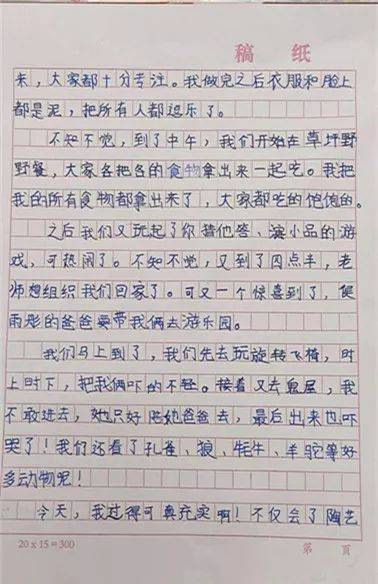 稿 纸
来，大家都十分专注。我做完之后衣服和脸上
都是泥，把所有人都逗乐了。
不知不觉，到了中午，我们开始在草坪野
野餐，大家各把各的食物拿出来一起吃。我把
我的所有食物都拿出来了，大家都吃的饱饱的。
之后我们又玩起了你猜他答、演小品的游
戏，可热闹了。不知不觉，又到了四点半，老
师想组织我们回家了。可又一个惊喜到了，侯
雨彤的爸爸要带我俩去游乐园。
我们马上到了，我们先去玩旋转飞椅，时
上时下，把我俩吓的不轻。接着又去鬼屋，我
不敢进去，她只好陪她爸爸去，最后出来也吓
哭了！我们还看了孔雀、狼、牦牛、羊驼等好
多动物呢！
今天，我过得可真充实啊！不仅会了陶艺
20×15=300 第 页